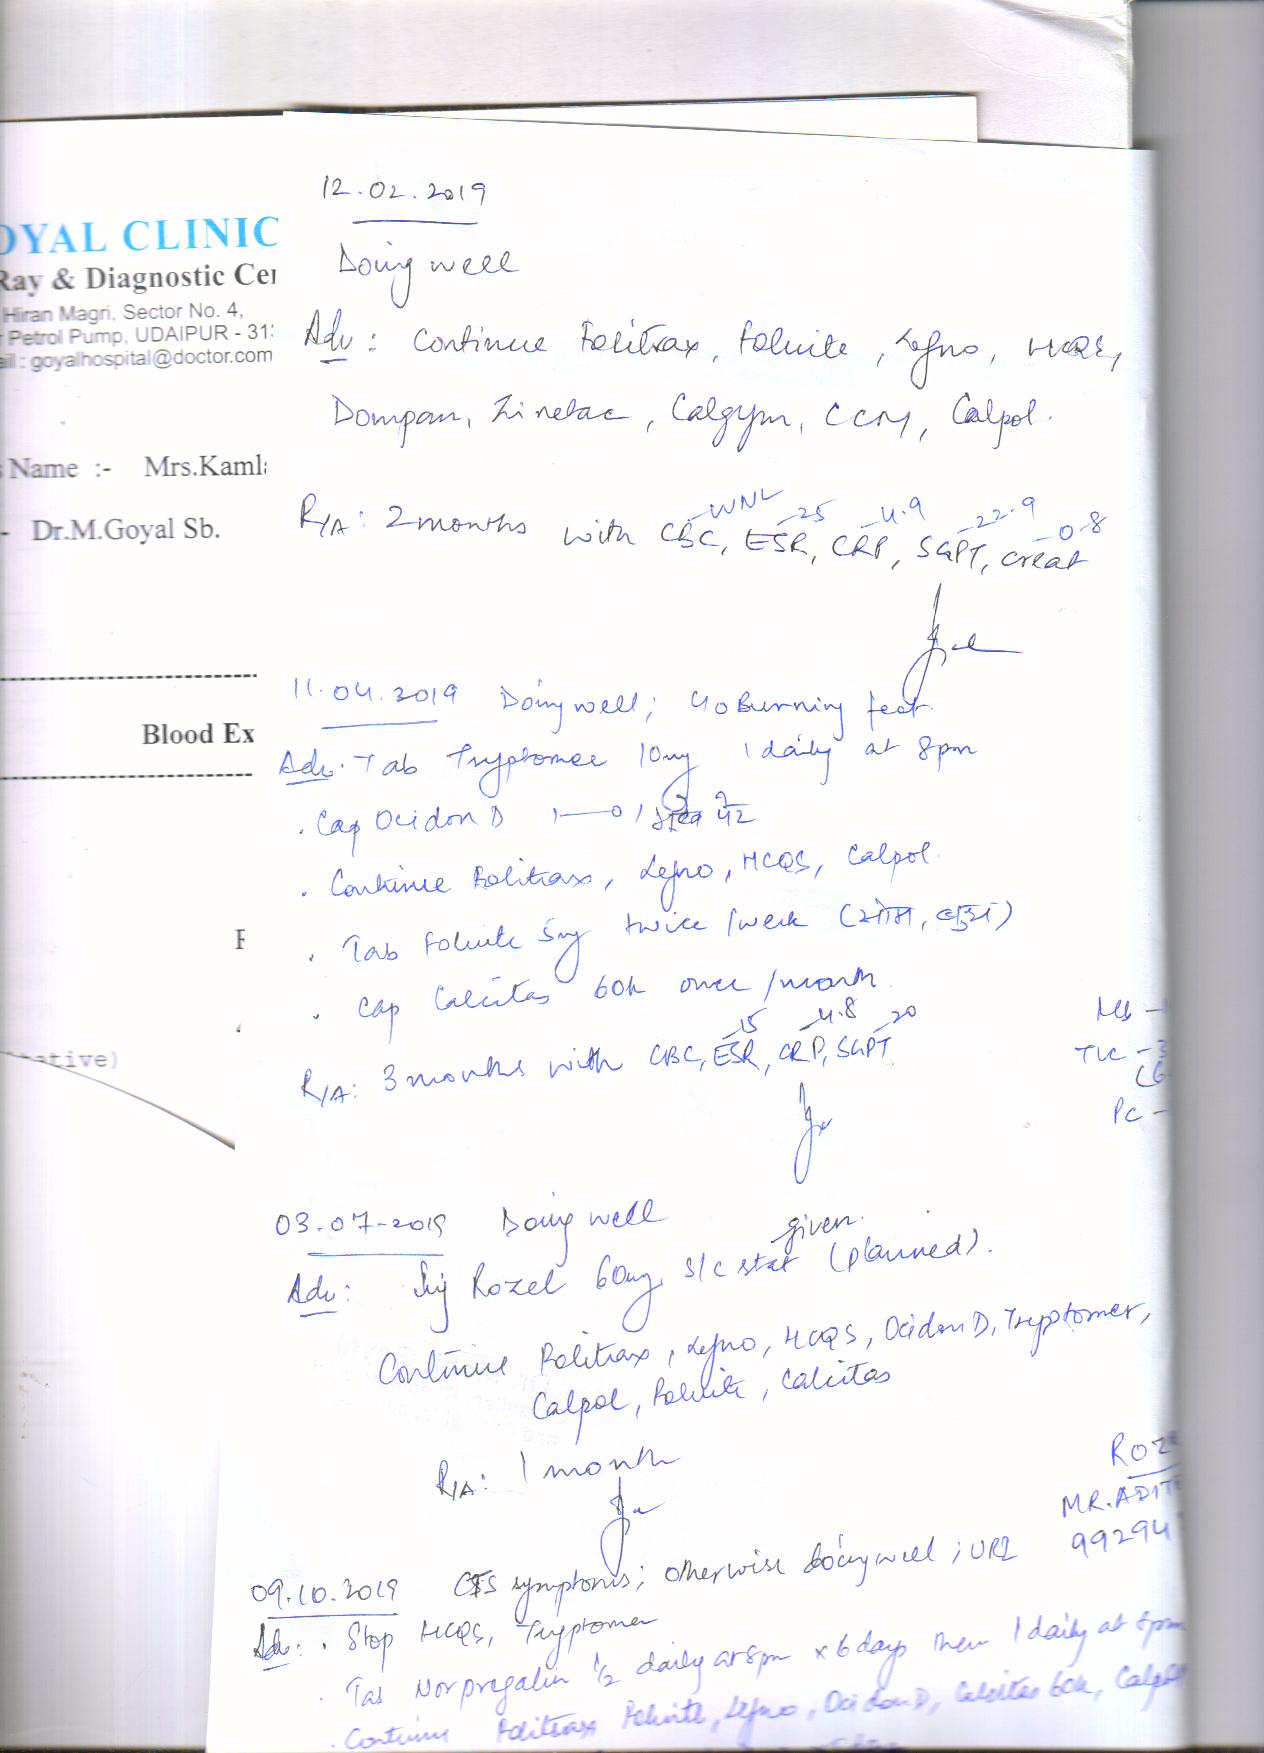 OYAL CLINIC
Ray & Diagnostic Cer
Hiran Magri, Sector No. 4,
r Petrol Pump, UDAIPUR - 313
ail : goyalhospital@doctor.com
s Name :- Mrs.Kamla
- Dr.M.Goyal Sb.
Blood Ex
F
ative)
12.02.2019
Doing well
Adv : Continue Folitrax, Folvite, Lefno, HCQS,
Dompan, Zinetac, Calgym, CCM, Calpol.
WNL 25 4.9 22.9 0.8
R/A: 2 months with CBC, ESR, CRP, SGPT, creat
11.04.2019 Doing well; c/o Burning feet.
Adv. Tab Tryptomer 10mg 1 daily at 8pm
. Cap Ocidon D 1—0
. Continue Folitrax, Lefno, HCQS, Calpol.
. Tab Folvite 5mg twice/week (सोम,
. Cap Calcitas 60k once/month
15 4.8 20
R/A: 3 months with CBC, ESR, CRP, SGPT
Hb -
TLC - 3
(6
PC -
03-07-2019 Doing well
given.
Adv: Inj Rozel 60mg s/c stat (planned).
Continue Folitrax, Lefno, HCQS, Ocidon D, Tryptomer,
Calpol, Folvite, Calcitas
R/A: 1 month
ROZE
MR.ADITE
99294
09.10.2019 CTS symptoms; otherwise doing well; URI
Adv: . Stop HCQS, Tryptomer
. Tab Nor pregalin 1/2 daily at 8pm x 6 days then 1 daily at 8pm
. Continue Folitrax Folvite, Lefno, Ocidon D, Calcitas 60k, Calpol